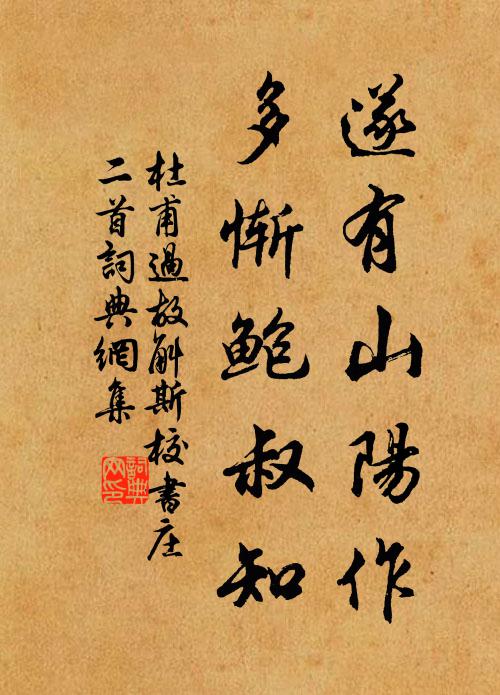 遂有山陽作
多慚鮑叔知
杜甫過故斛斯校書庄
二首詞典網集
詞典
文印